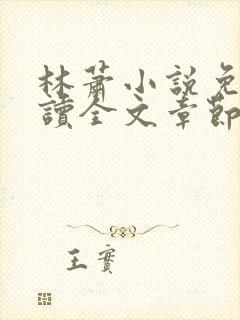 林蕭小説免
讀全文章節
王實